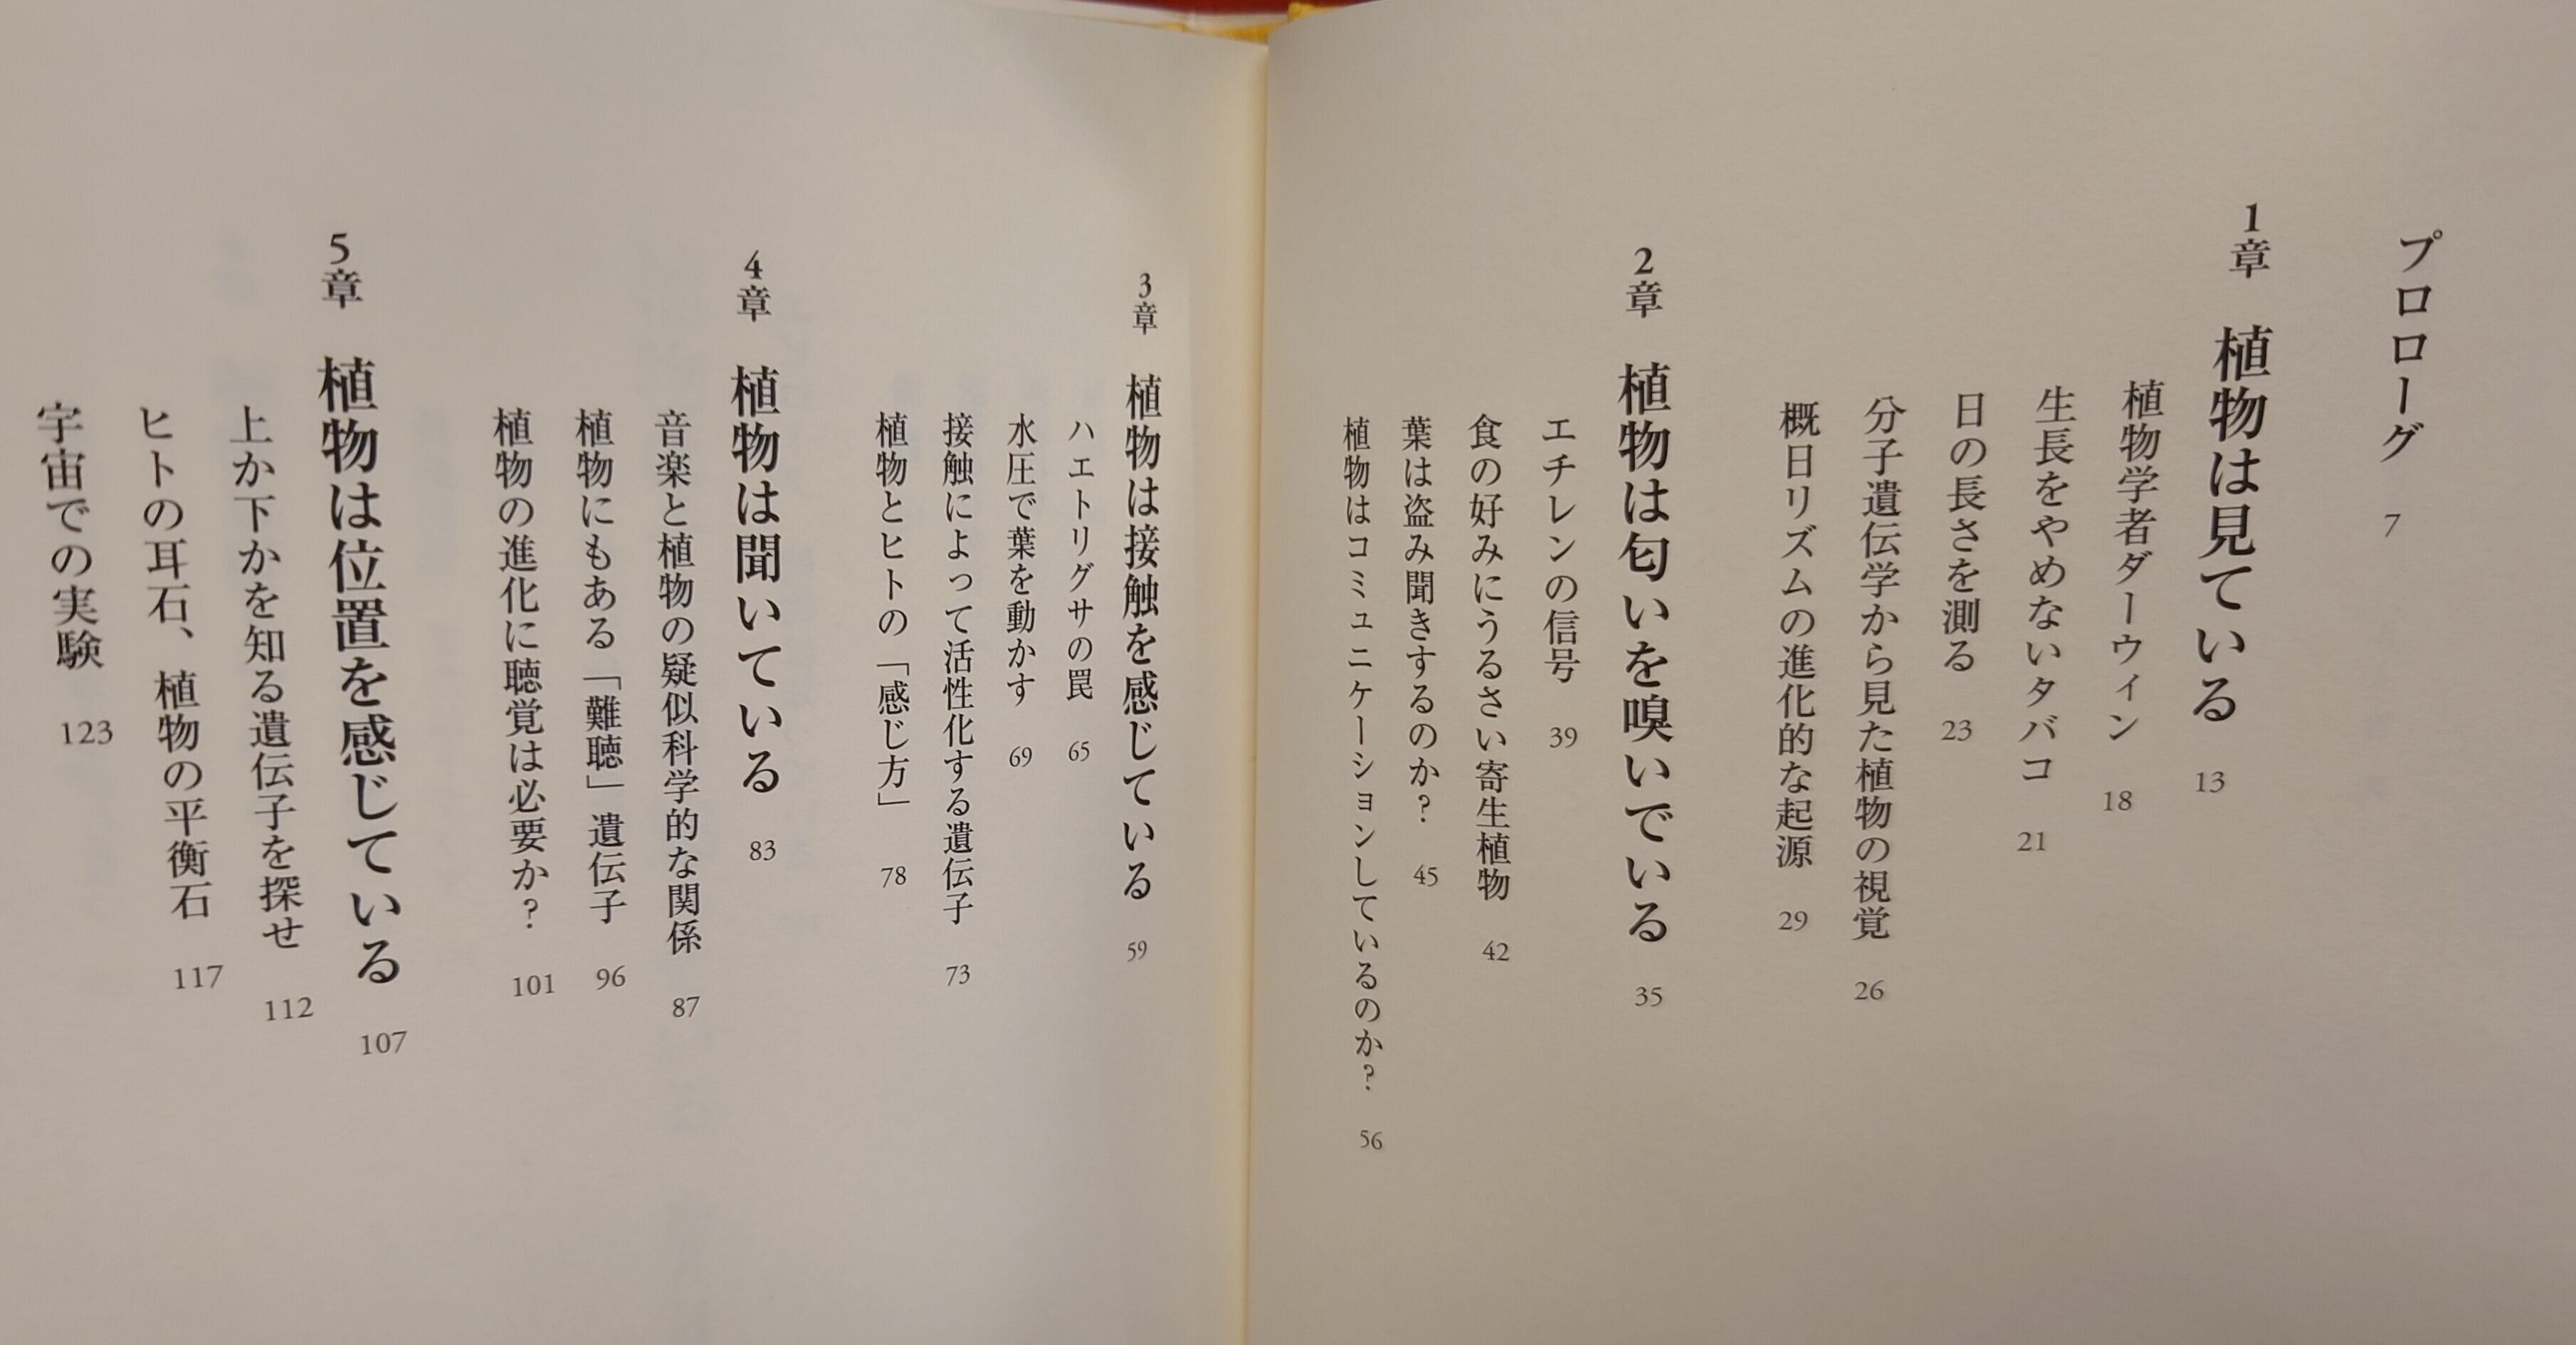 プロローグ 7
1章 植物は見ている 13
植物学者ダーウィン 18
生長をやめないタバコ 21
日の長さを測る 23
分子遺伝学から見た植物の視覚 26
概日リズムの進化的な起源 29
2章 植物は匂いを嗅いでいる 35
エチレンの信号 39
食の好みにうるさい寄生植物 42
葉は盗み聞きするのか? 45
植物はコミュニケーションしているのか? 56
3章 植物は接触を感じている 59
ハエトリグサの罠 65
水圧で葉を動かす 69
接触によって活性化する遺伝子 73
植物とヒトの「感じ方」 78
4章 植物は聞いている 83
音楽と植物の疑似科学的な関係 87
植物にもある「難聴」遺伝子 96
植物の進化に聴覚は必要か? 101
5章 植物は位置を感じている 107
上か下かを知る遺伝子を探せ 112
ヒトの耳石、植物の平衡石 117
宇宙での実験 123